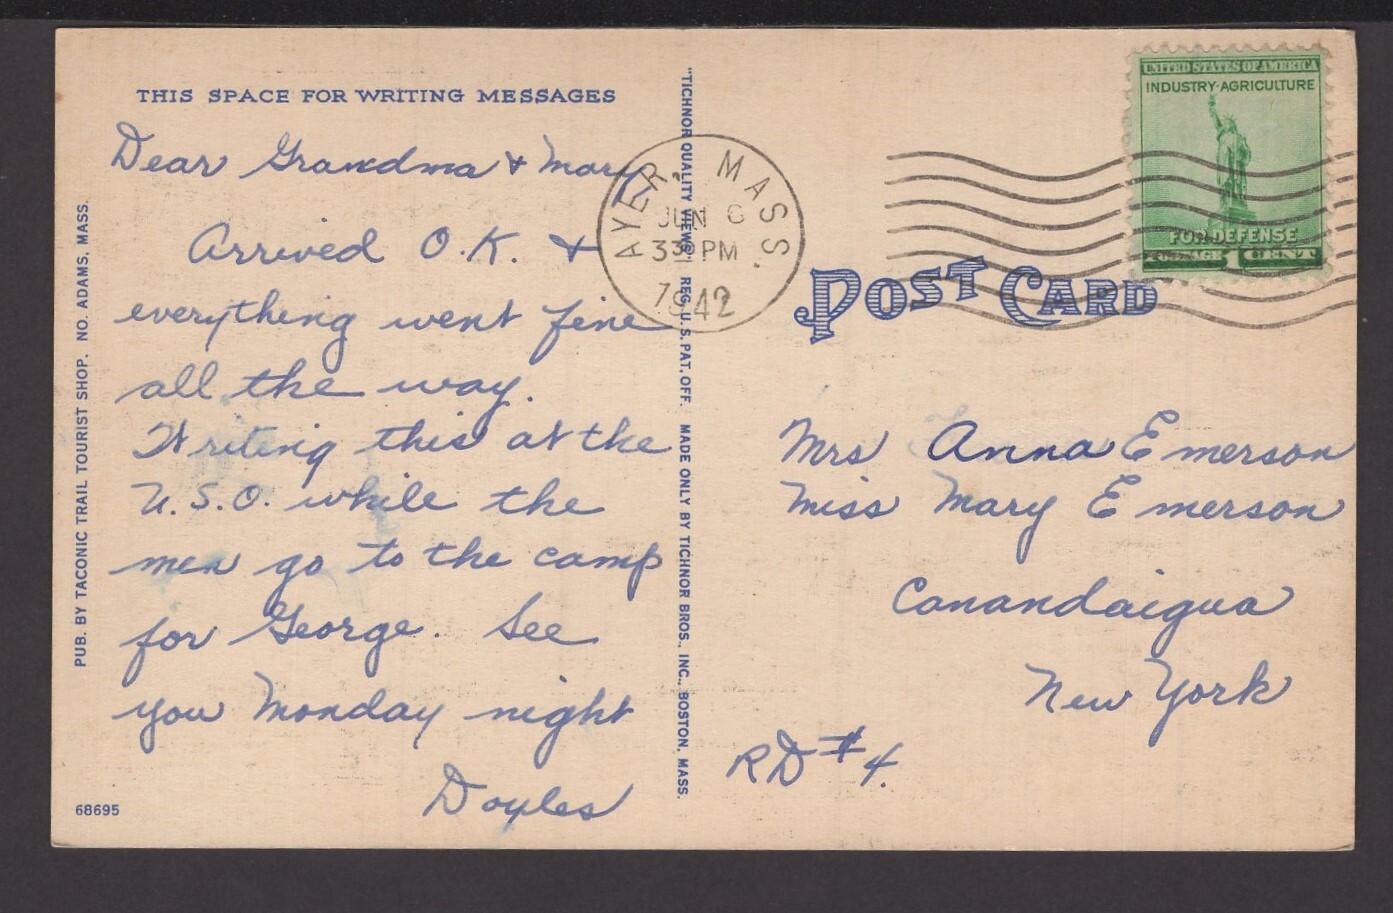 THIS SPACE FOR WRITING MESSAGES
Dear Grandma & Mary
Arrived O.K. &
everything went fine
all the way.
Writing this at the
U.S.O. while the
men go to the camp
for George. See
you Monday night
Doyles
68695
PUB. BY TACONIC TRAIL TOURIST SHOP. NO. ADAMS, MASS.
"TICHNOR QUALITY VIEWS" REG. U. S. PAT. OFF. MADE ONLY BY TICHNOR BROS., INC., BOSTON, MASS.
AYER, MASS.
JUN 6
PM
1942
UNITED STATES OF AMERICA
INDUSTRY-AGRICULTURE
FOR DEFENSE
POSTAGE 1 CENT
POST CARD
Mrs Anna Emerson
Miss Mary Emerson
Canandaigua
New York
RD #4.